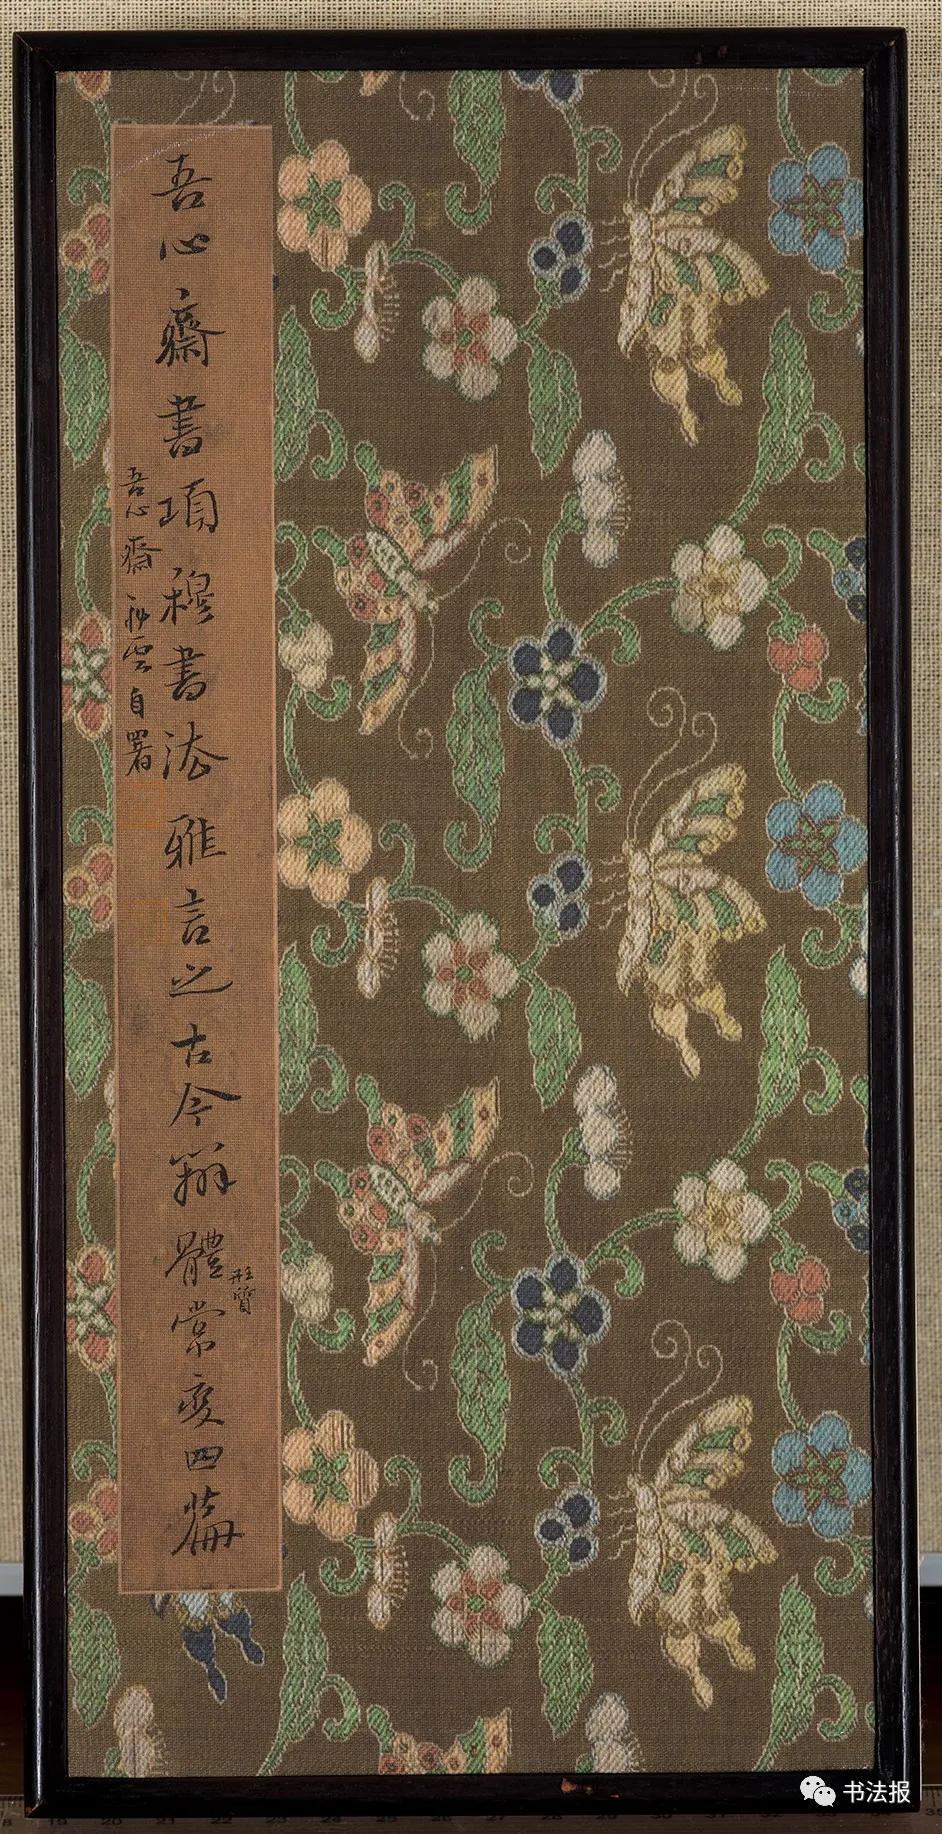 吾心齋書項穆書法雅言之古今辨體常變四篇
形質
吾心齋自署
书法报